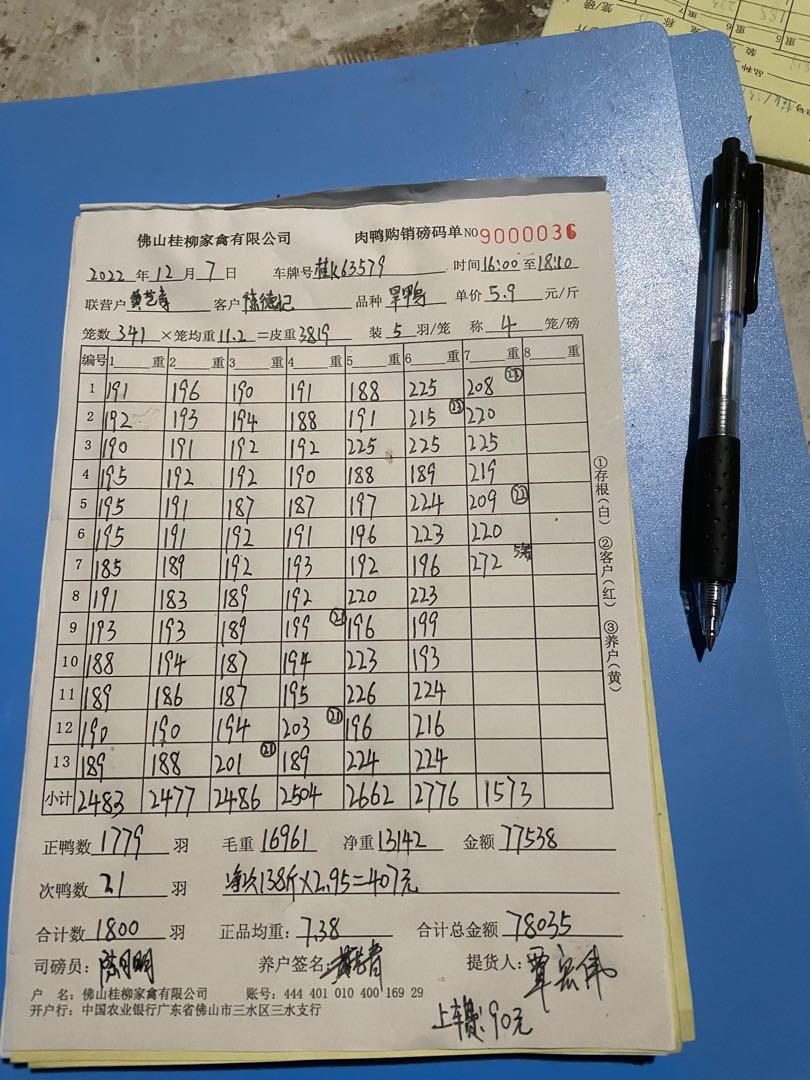 佛山桂柳家禽有限公司 肉鸭购销磅码单 NO 9000036
2022 年 12 月 7 日 车牌号 桂K63579 时间 16:00 至 18:10
联营户 客户 陈德记 品种 旱鸭 单价 5.9 元/斤
笼数 341 ×笼均重 11.2 =皮重 3819 装 5 羽/笼 称 4 笼/磅
编号 1 重 2 重 3 重 4 重 5 重 6 重 7 重 8 重
1 191 196 190 191 188 225 208 ㉓
2 192 193 194 188 191 215 ㉓ 220
3 190 191 192 192 225 225 225
4 195 192 192 190 188 189 219
5 195 191 187 187 197 224 209 ㉒
6 195 191 192 191 196 223 220
7 185 189 192 193 192 196 272 5笼
8 191 183 189 192 220 223
9 193 193 189 199 ㉑ 196 199
10 188 194 187 194 223 193
11 189 186 187 195 226 224
12 190 190 194 203 ㉑ 196 216
13 189 188 201 ㉑ 189 224 224
小计 2483 2477 2486 2504 2662 2776 1573
正鸭数 1779 羽 毛重 16961 净重 13142 金额 77538
次鸭数 21 羽 净次138斤×2.95=407元
合计数 1800 羽 正品均重: 7.38 合计总金额 78035
司磅员: 陈月明 养户签名: 提货人: 覃宏伟
户 名: 佛山桂柳家禽有限公司 账号: 444 401 010 400 169 29
开户行: 中国农业银行广东省佛山市三水区三水支行
上车费: 90元
①存根(白) ②客户(红) ③养户(黄)